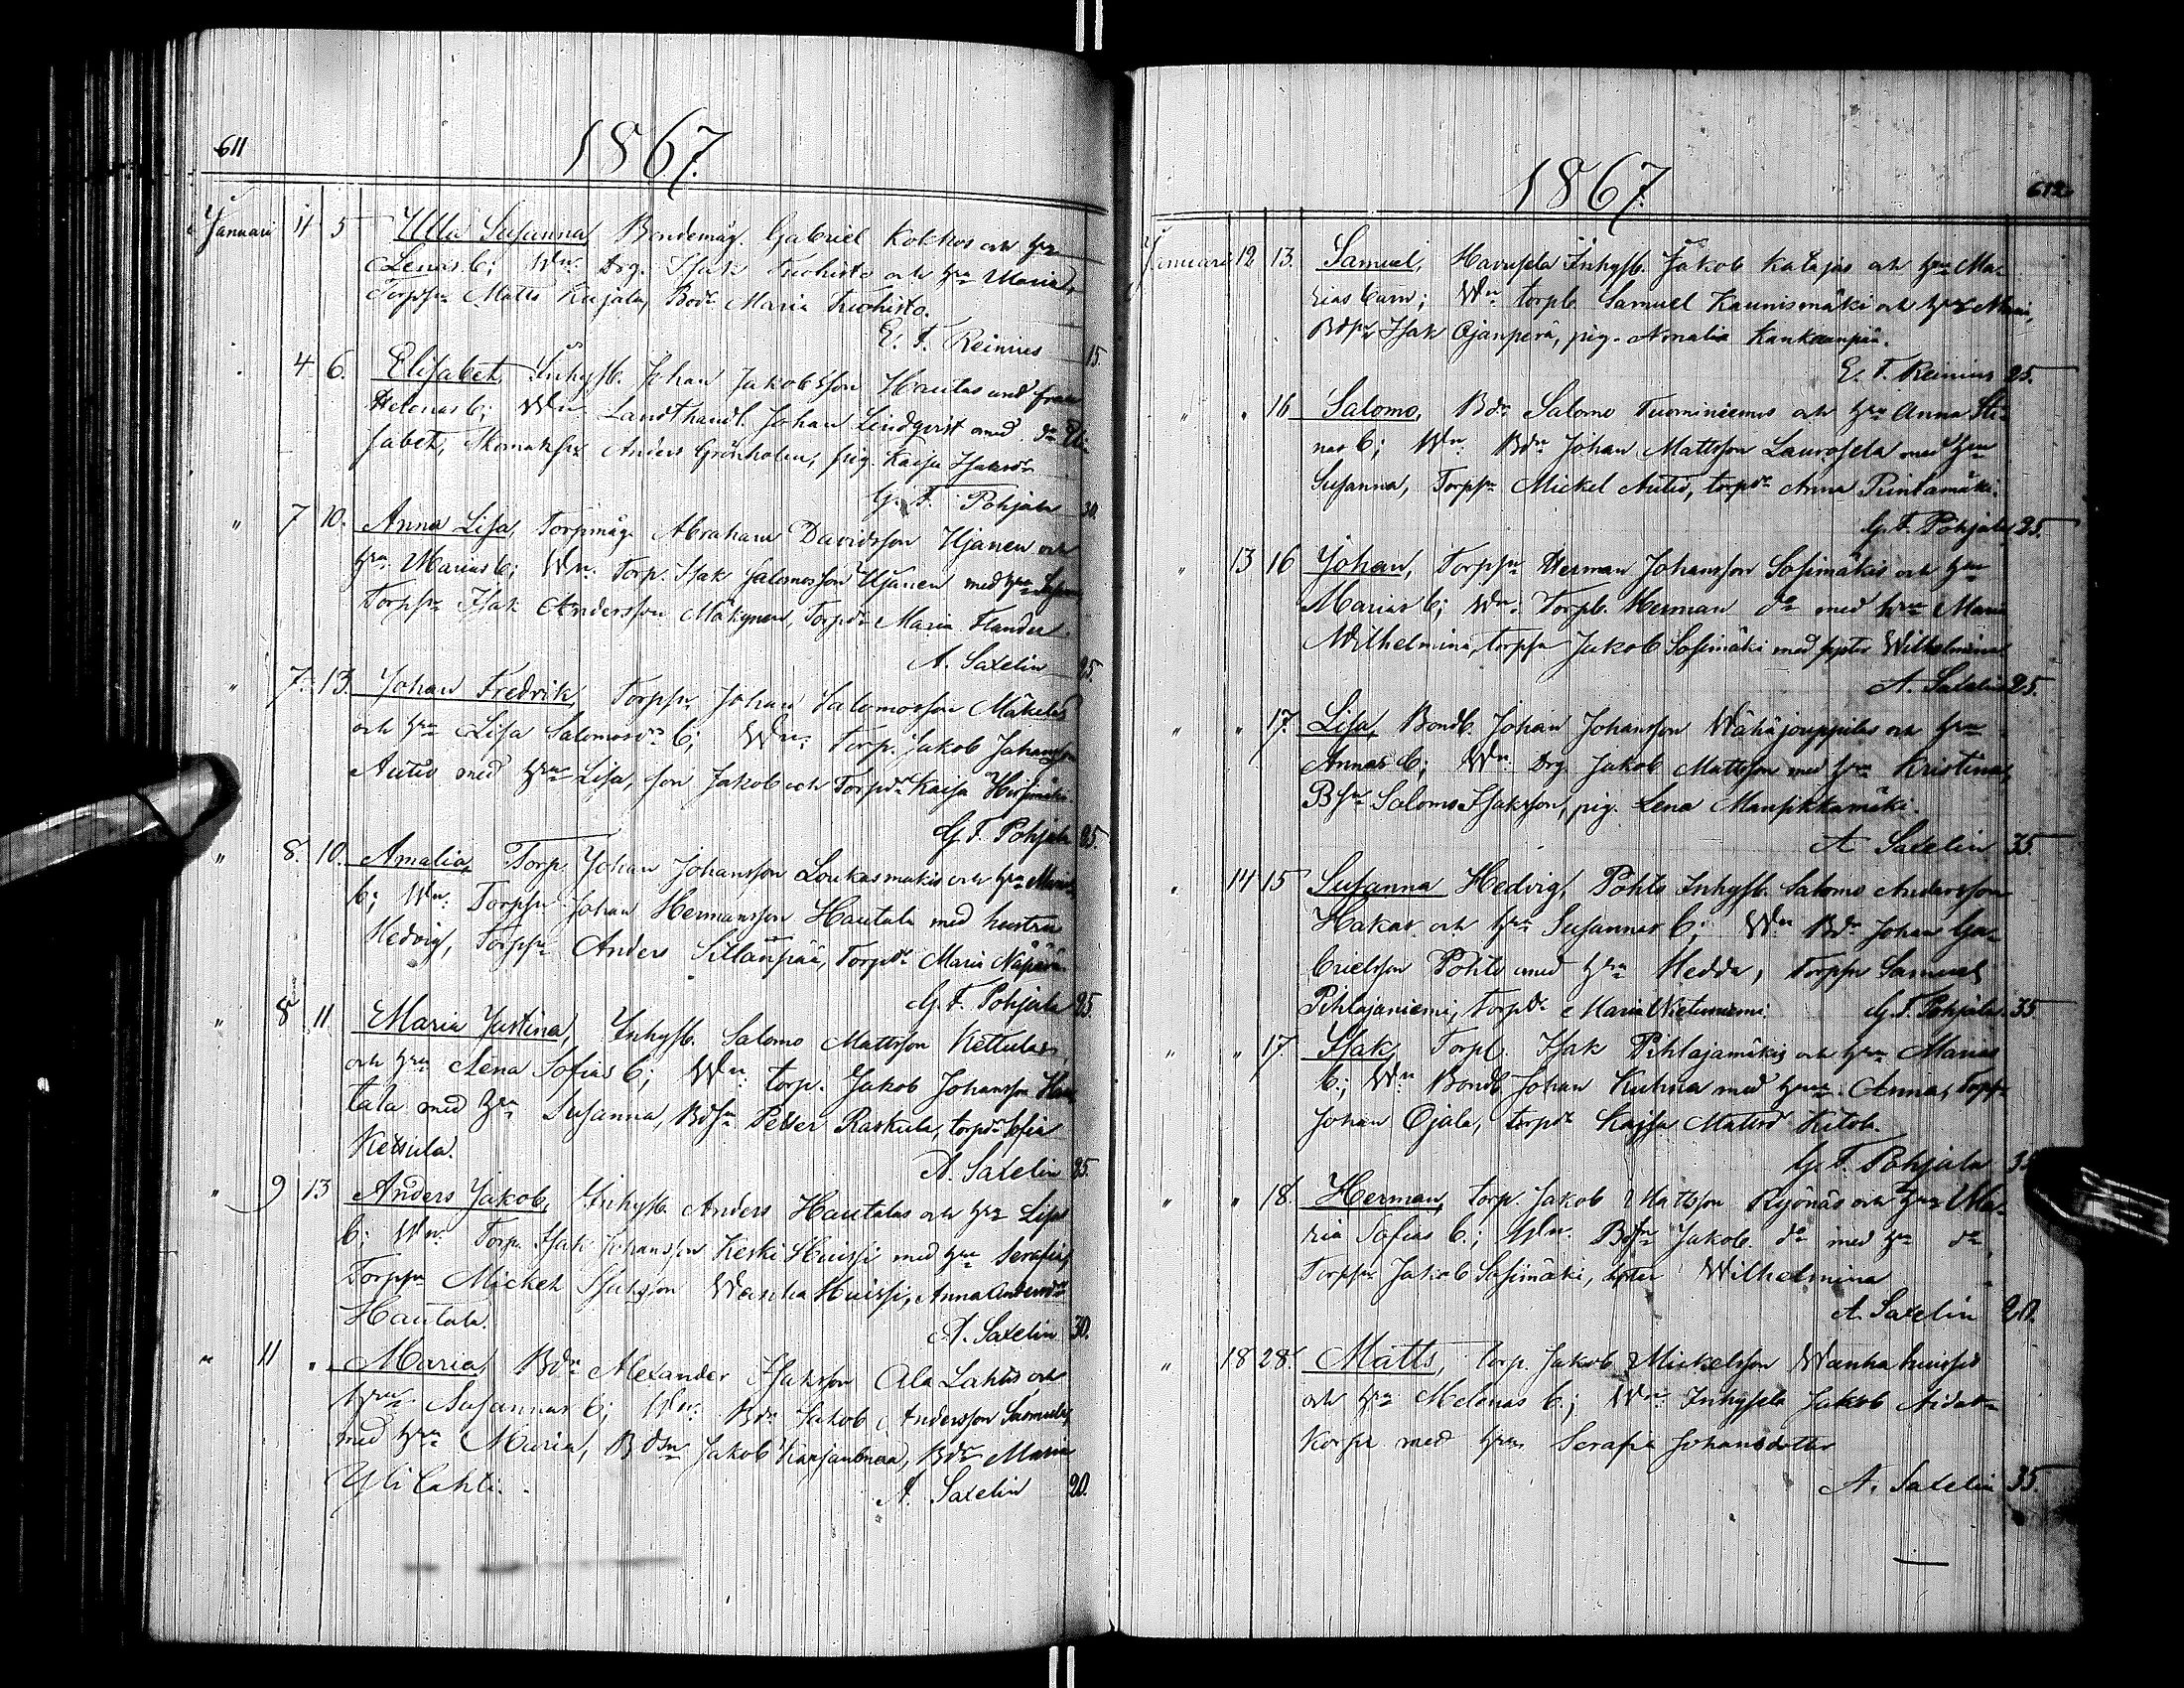 611
1867.
Januari 4 5 Ulla Susanna, Bondemåg. Gabriel Kokkos och hru
Lenas b; Wn. Drg. Isak Tuohisto och hru Maria,
Torpsn Matts Kujala, Bodr Maria Tuohisto.
E. F. Reinius 15.
4. 6. Elisabet, Inhysb. Johan Jakobsson Hautas och fru
Helenas b; Wn. Landthandl. Johan Lindqvist med do Eli-
sabet, Anders Grönholm, pig. Kajsa
G. F. Pohjala 30.
" 7 10. Anna Lisa, Torpmåg Abraham Davidsson Ujanen och
hru Marias b; Wn. Torp. Isak Salomosson Ujanen med hru
Torpsn Isak Andersson Mäkynen, Torpdr Maria Flander.
A. Saxelin 25.
" 7. 13. Johan Fredrik, Torpsn Johan Salomosson Mäkeläs
och hru Lisa Salomosdr b; Wn. Torp. Jakob Johansson
Autio med hru Lisa, son Jakob och Torpdr Kaisa
G. F. Pohjala 25.
" 8. 10. Amalia, Torp Johan Johansson Loukasmäkis och hru Marias
b; Wn. Torpsn Johan Hermansson Hautala med hustru
Hedvig, Torpsn Anders Sillanpää, Torpdr Maria
G. F. Pohjala 25.
" 8 11 Maria Justina, Inhysb. Salomo Mattsson Kettulas
och hru Lena Sofias b; Wn. torp. Jakob Johansson Hau-
tala med hru Susanna, Bdsn Petter Raskula, torpdr Sofia
Ketsula.
A. Saxelin 25.
" 9 13 Anders Jakob, Inhysb. Anders Hautalas och hru Lisas
b; Wn. Torp. Isak Johansson Keski Huissi med hru Serafia,
Torpsn Mickel Isaksson Wanha Huissi, Anna Andersdr
Hautala.
A. Saxelin 30.
" 11 " Maria, Bdn Alexander Isaksson Ala Lahtis och
hru Susannas b; Wn. Bdn Jakob Andersson Samuli,
med hru Maria, Bdsn Jakob Karjanlahti, Bdr Maria
Yli Lahti.
A. Saxelin 20.
1867.
612
Januari 12 13. Samuel, Havusela Inhysb. Jakob Katajas och hru Ma-
rias barn; Wn. torpb. Samuel Kaunismäki och hru Maria,
Bdsn Isak Ojanperä, pig. Amalia Kankaanpää.
E. F. Reinius 25.
" " 16 Salomo, Bdn Salomo Tuominiemis och hru Anna Sti-
nas b; Wn. Bdn Johan Mattsson Laurosela med hru
Susanna, Torpsn Mickel Autio, torpdr Anna Rintamäki.
G. F. Pohjala 25.
" 13 16 Johan, Torpsn Herman Johansson Sosimäkis och hru
Marias b; Wn. Torpb. Herman do med hru Maria
Wilhelmina, torpsn Jakob Sosimäki med syster Wilhelmina
A. Saxelin 25.
" " 17. Lisa, Bondb. Johan Johansson Wähäjouppilas och hru
Annas b; Wn. Drg Jakob Mattsson med hru Kristina,
Bsn Salomo Isaksson, pig. Lena Mansikkamäki.
A Saxelin 35.
" 14 15 Susanna Hedvig, Pohto Inhysb. Salomo Andersson
Hakas och hru Susannas b; Wn Bdn Johan Ga-
brielsson Pohto med hru Hedda, Torpsn Samuel
Pihlajaniemi, torpdr Maria Nietuniemi. G. F. Pohjala 35
" " 17 Isak, Torpb. Isak Pihlajamäkis och hru Marias
b; Wn Bondb Johan Kuhna med hru Anna, Torpsn
Johan Ojala, torpdr Kajsa Mattsd Kitola.
G. F. Pohjala 35
" " 18. Herman, torp. Jakob Mattsson Ryönäs och hru Ma-
ria Sofias b; Wn. Bdsn Jakob do med hru do,
Torpsn Jakob Sosimäki, syster Wilhelmina
A. Saxelin 20.
" 18 28. Matts, torp. Jakob Mickelsson Wanha huissis
och hru Helenas b; Wn. Inhysb Jakob Aidas-
korpi med hru Serafia Johansdotter
A. Saxelin 35.